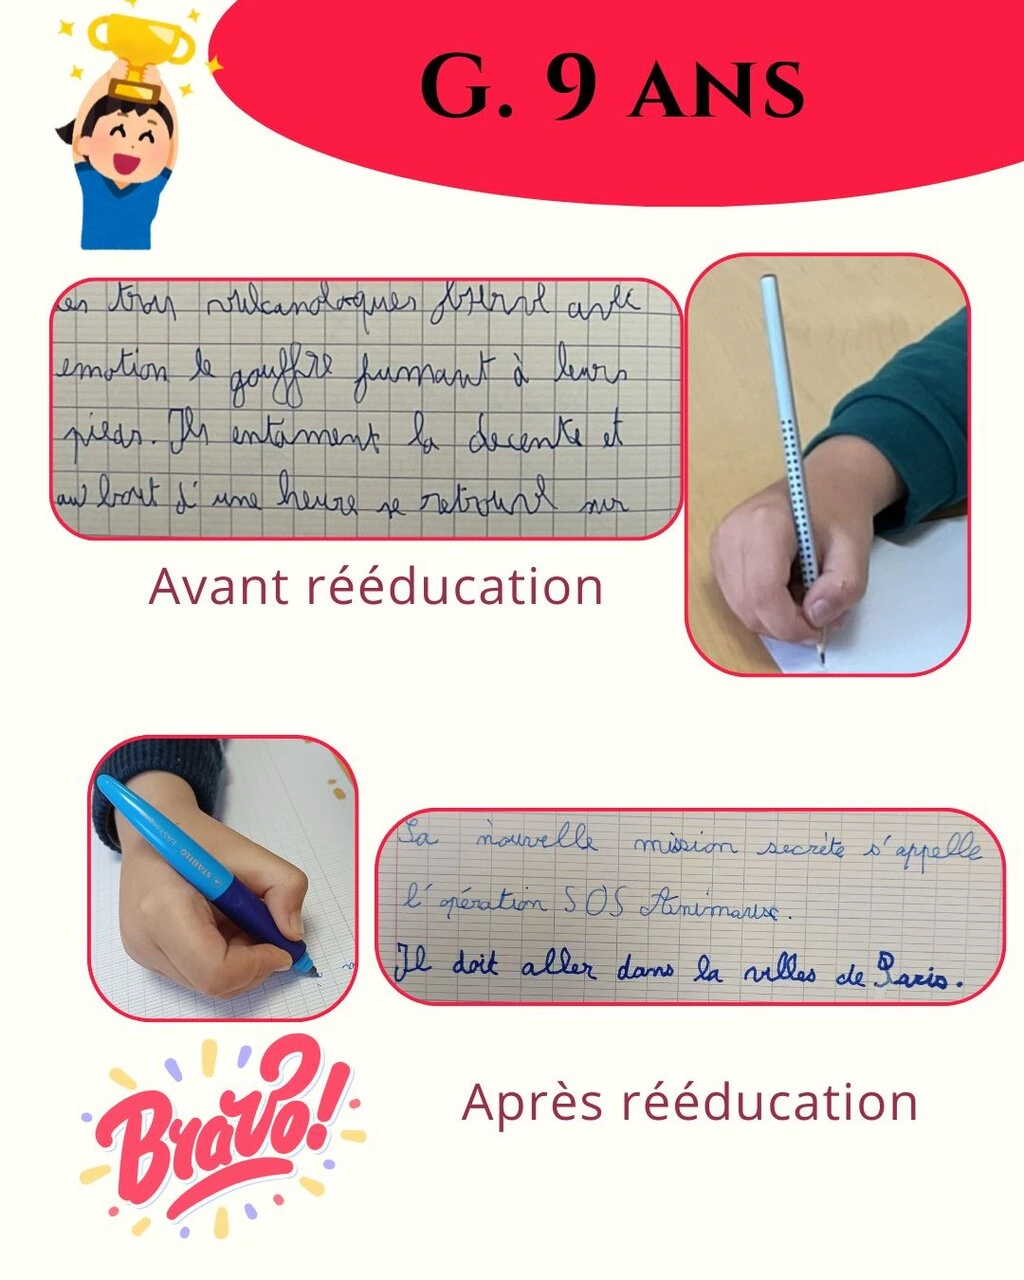 G. 9 ANS
Les trois vulcanologues observent avec
emotion le gouffre fumant à leurs
pieds. Ils entament la decente et
au bout d'une heure se retrouvent sur
Avant rééducation
STABILO EASY
La nouvelle mission secrète s'appelle
l'opération SOS Animaux.
Il doit aller dans la villes de Paris.
Bravo!
Après rééducation